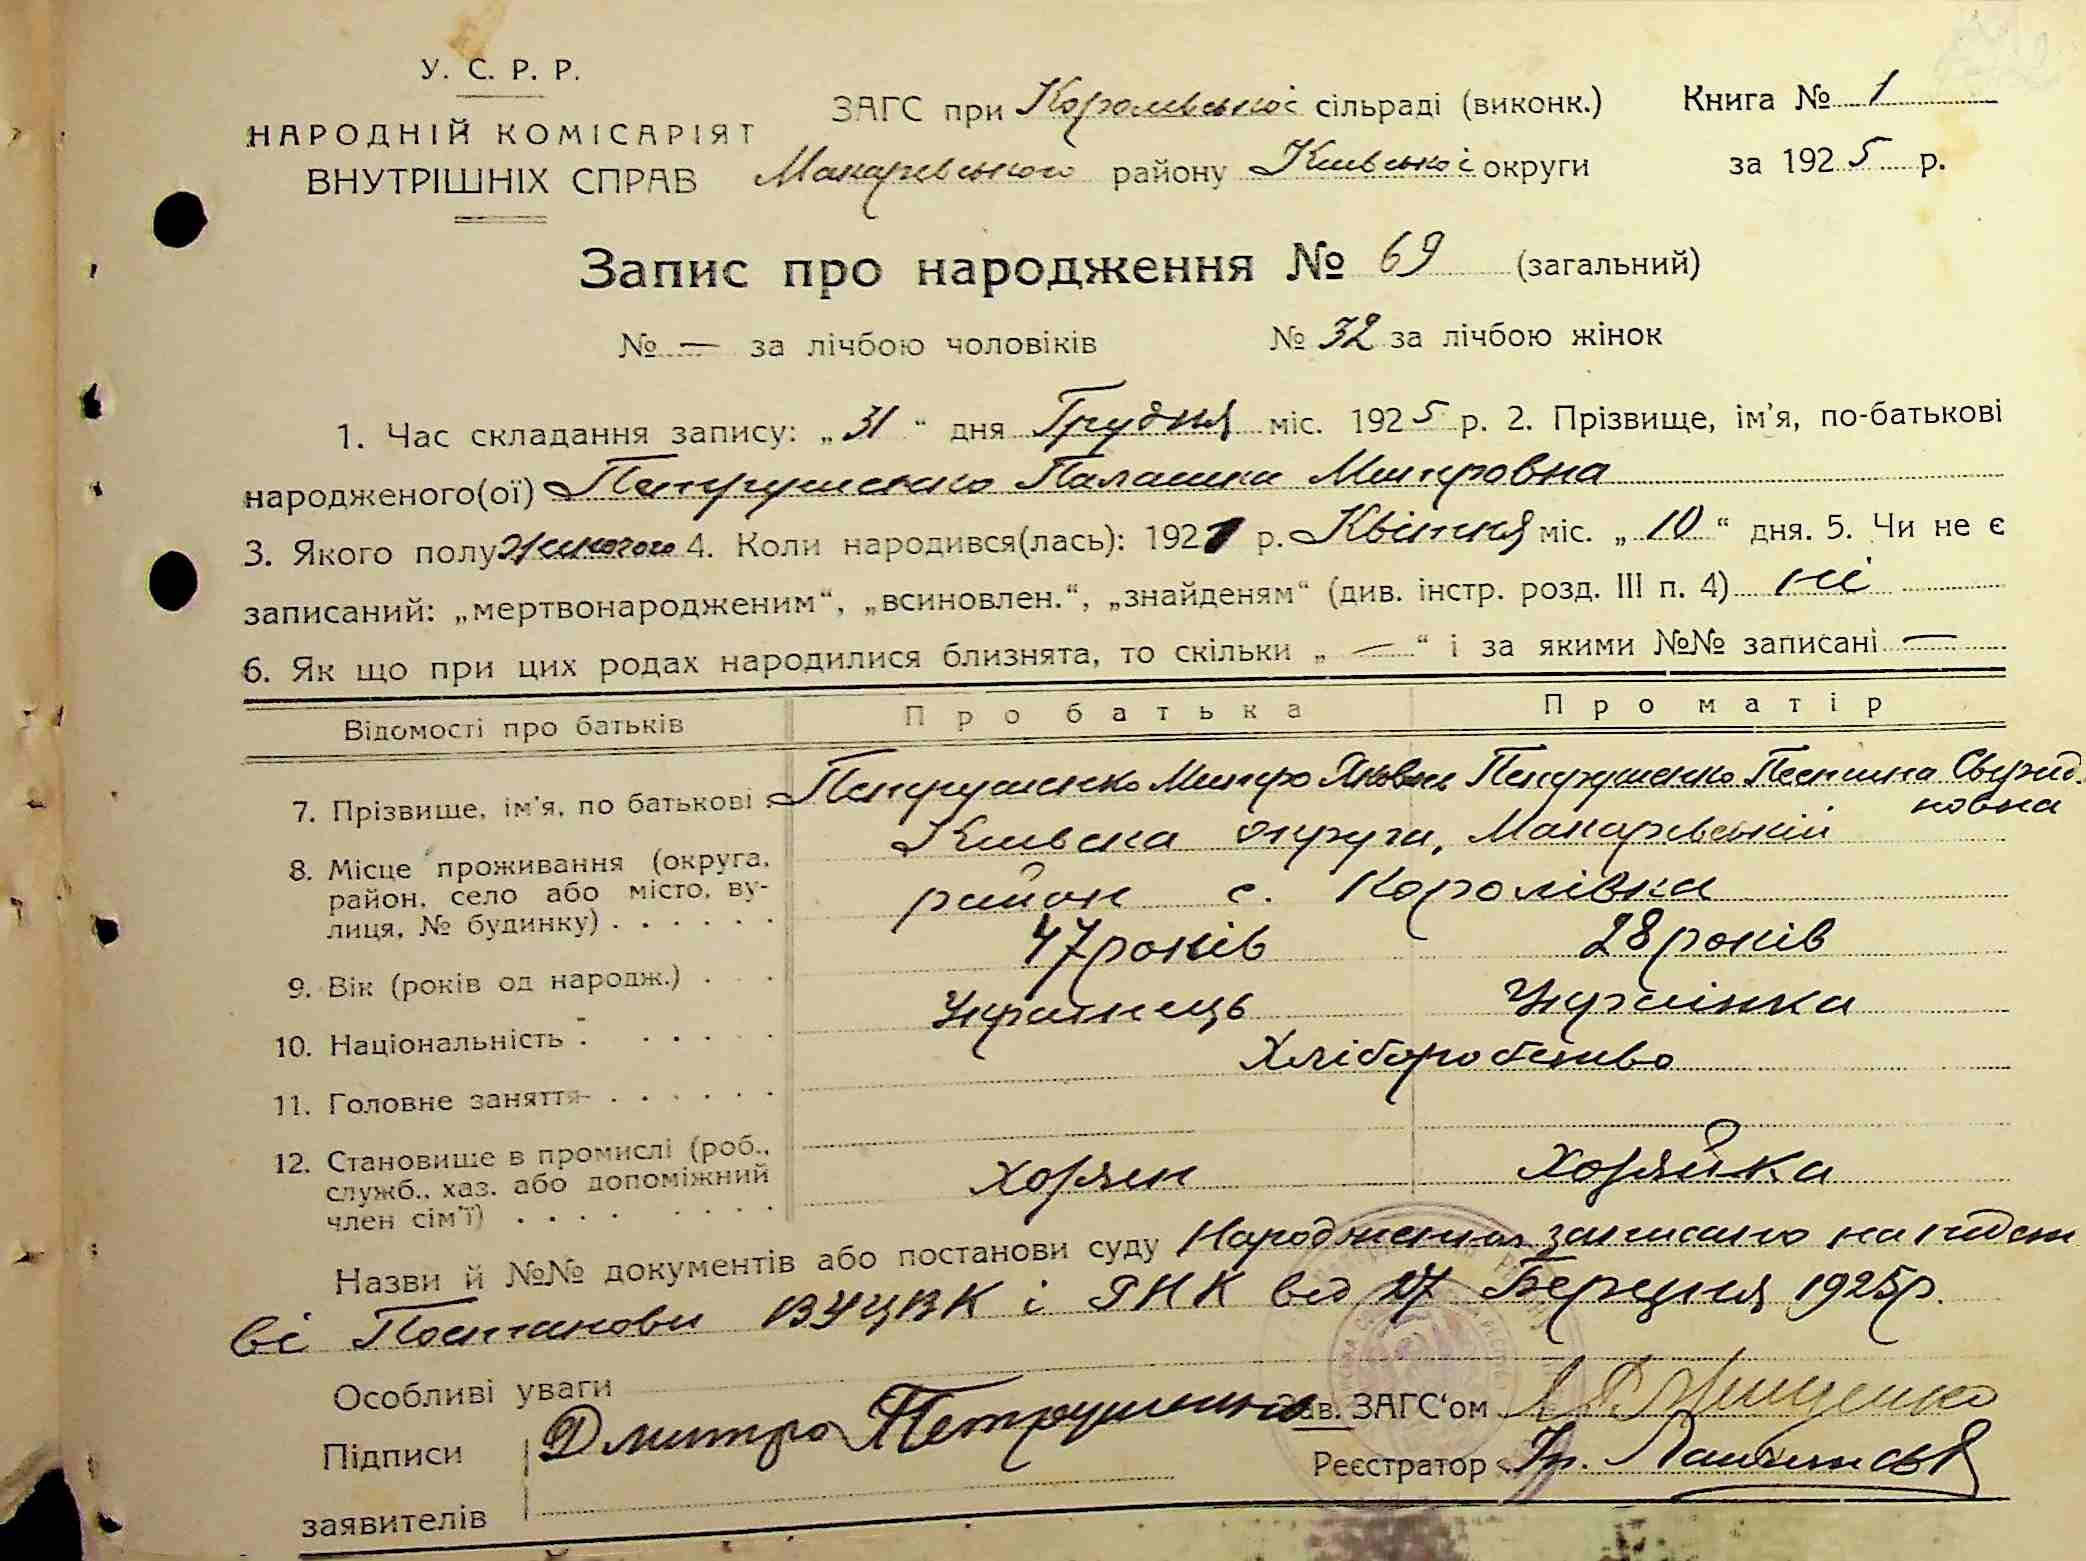 У. С. Р. Р.
НАРОДНІЙ КОМІСАРІЯТ
ВНУТРІШНІХ СПРАВ
ЗАГС при Королівської сільраді (виконк.)
Макарівського району Київської округи
Книга № 1
за 1925 р.
Запис про народження № 69 (загальний)
№ — за лічбою чоловіків № 32 за лічбою жінок
1. Час складання запису: „31“ дня Грудня міс. 1925 р. 2. Прізвище, ім'я, по-батькові
народженого(ої) Петрушенко Палашка Митровна
3. Якого полу жіночого 4. Коли народився(лась): 1921 р. Квітня міс. „10“ дня. 5. Чи не є
записаний: „мертвонародженим“, „всиновлен.“, „знайденям“ (див. інстр. розд. III п. 4) ні
6. Як що при цих родах народилися близнята, то скільки „—“ і за якими №№ записані —
Відомості про батьків Про батька Про матір
7. Прізвище, ім'я, по батькові Петрушенко Митро Яковл Петрушенко Свирид
новна
8. Місце проживання (округа, Київска округи, Макарівський
район, село або місто, ву- район с. Королівка
лиця, № будинку)
9. Вік (років од народж.) 47 років 28 років
10. Національність Українець Українка
11. Головне заняття Хліборобство
12. Становище в промислі (роб.,
служб., хаз. або допоміжний Хозяен Хозяйка
член сім'ї)
Назви й №№ документів або постанови суду Народження записано на підст
ві Постанови ВУЦВК і РНК від 27 Березня 1925 р.
Особливі уваги
Підписи
заявителів
Дмитро Петрушенко
Зав. ЗАГС'ом
Реєстратор Гр.